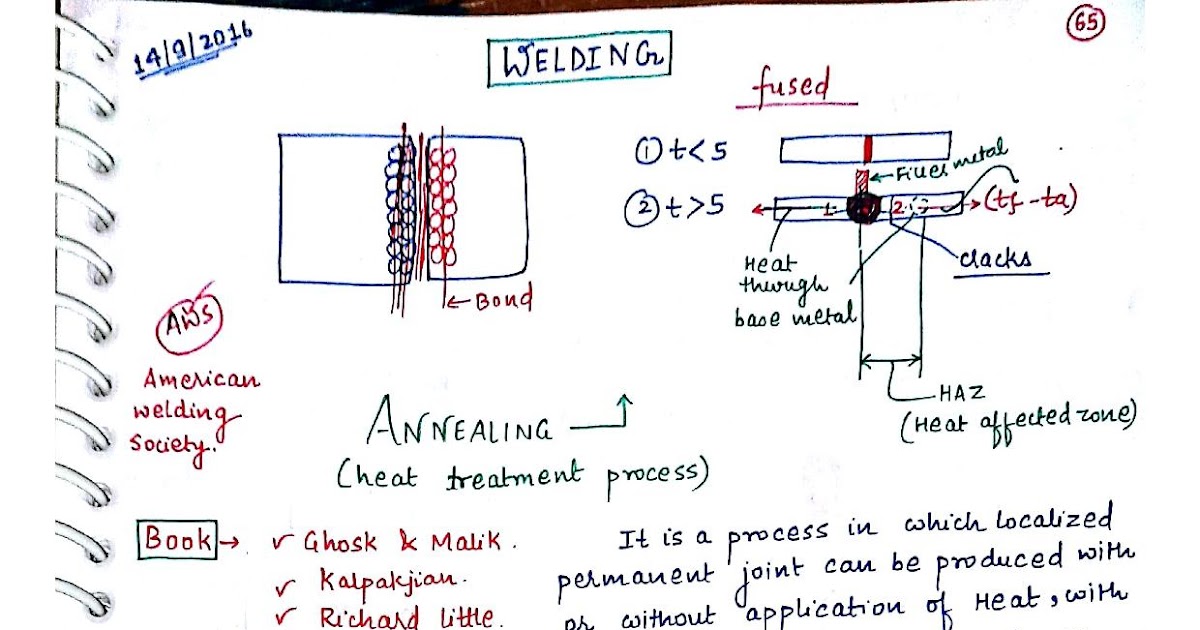 14/9/2016
65
WELDING
fused
① t< 5
Filler metal
② t>5
1
2
(tf -ta)
Heat
through
base metal
cracks
← Bond
AWS
American
welding
Society.
HAZ
(Heat affected zone)
ANNEALING
(heat treatment process)
Book → ✓ Ghosk & Malik.
✓ Kalpakjian.
✓ Richard little.
It is a process in which localized
permanent joint can be produced with
or without application of Heat, with